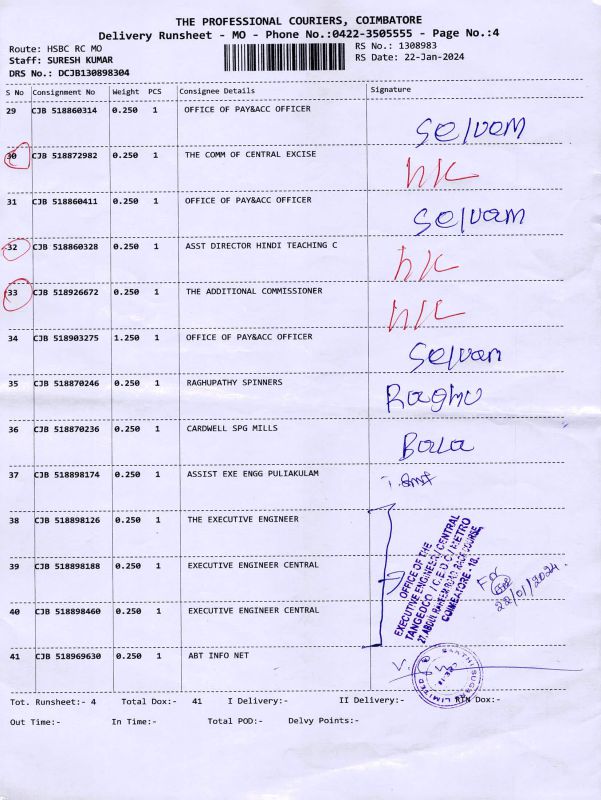 THE PROFESSIONAL COURIERS, COIMBATORE
Delivery Runsheet - MO - Phone No.:0422-3505555 - Page No.:4
Route: HSBC RC MO RS No.: 1308983
Staff: SURESH KUMAR RS Date: 22-Jan-2024
DRS No.: DCJB130898304
S No Consignment No Weight PCS Consignee Details Signature
29 CJB 518860314 0.250 1 OFFICE OF PAY&ACC OFFICER Selvam
30 CJB 518872982 0.250 1 THE COMM OF CENTRAL EXCISE h/c
31 CJB 518860411 0.250 1 OFFICE OF PAY&ACC OFFICER Selvam
32 CJB 518860328 0.250 1 ASST DIRECTOR HINDI TEACHING C h/c
33 CJB 518926672 0.250 1 THE ADDITIONAL COMMISSIONER h/c
34 CJB 518903275 1.250 1 OFFICE OF PAY&ACC OFFICER Selvam
35 CJB 518870246 0.250 1 RAGHUPATHY SPINNERS Raghu
36 CJB 518870236 0.250 1 CARDWELL SPG MILLS Bala
37 CJB 518898174 0.250 1 ASSIST EXE ENGG PULIAKULAM
38 CJB 518898126 0.250 1 THE EXECUTIVE ENGINEER
39 CJB 518898188 0.250 1 EXECUTIVE ENGINEER CENTRAL
40 CJB 518898460 0.250 1 EXECUTIVE ENGINEER CENTRAL
OFFICE OF THE
EXECUTIVE ENGINEER / CENTRAL
TANGEDCO / C.E.D.C / METRO
COIMBATORE - 18.
For
22/01/2024
41 CJB 518969630 0.250 1 ABT INFO NET
SAKTHI SUGARS LIMITED
Tot. Runsheet:- 4 Total Dox:- 41 I Delivery:- II Delivery:- RTN Dox:-
Out Time:- In Time:- Total POD:- Delvy Points:-